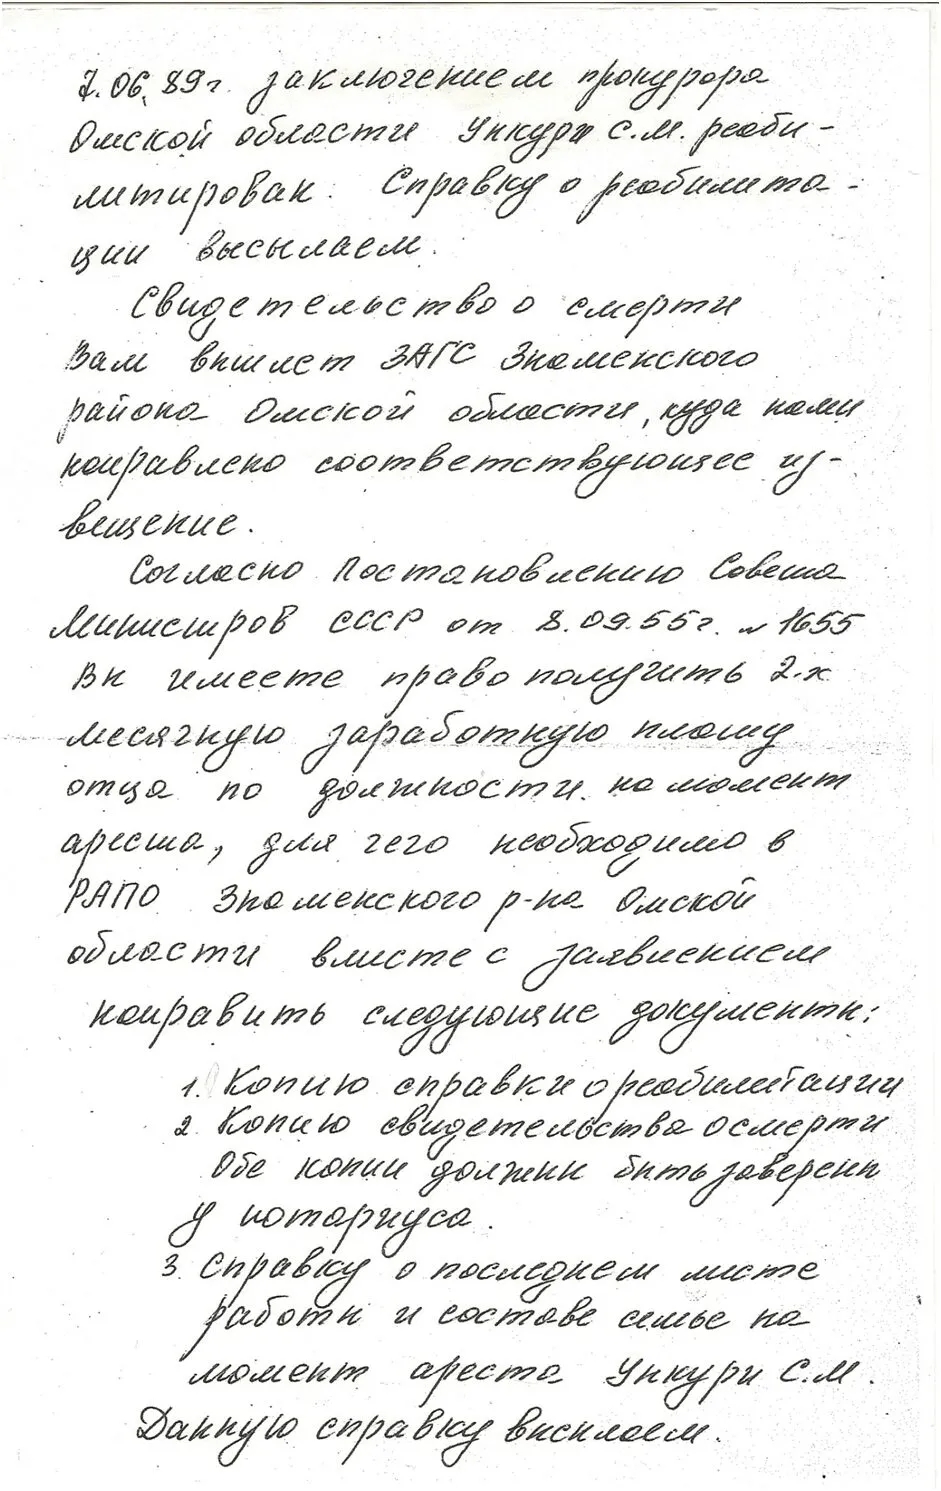 7.06.89г. заключением прокурора
Омской области Уккури С.М. реаби-
литирован. Справку о реабилита-
ции высылаем.
Свидетельство о смерти
Вам вышлет ЗАГС Знаменского
района Омской области, куда нами
направлено соответствующее из-
вещение.
Согласно Постановлению Совета
Министров СССР от 8.09.55г. № 1655
Вы имеете право получить 2-х
месячную заработную плату
отца по должности на момент
ареста, для чего необходимо в
РАПО Знаменского р-на Омской
области вместе с заявлением
направить следующие документы:
1. Копию справки о реабилитации
2. Копию свидетельства о смерти
Обе копии должны быть заверены
у нотариуса.
3. Справку о последнем месте
работы и составе семье на
момент ареста Уккури С.М.
Данную справку высылаем.